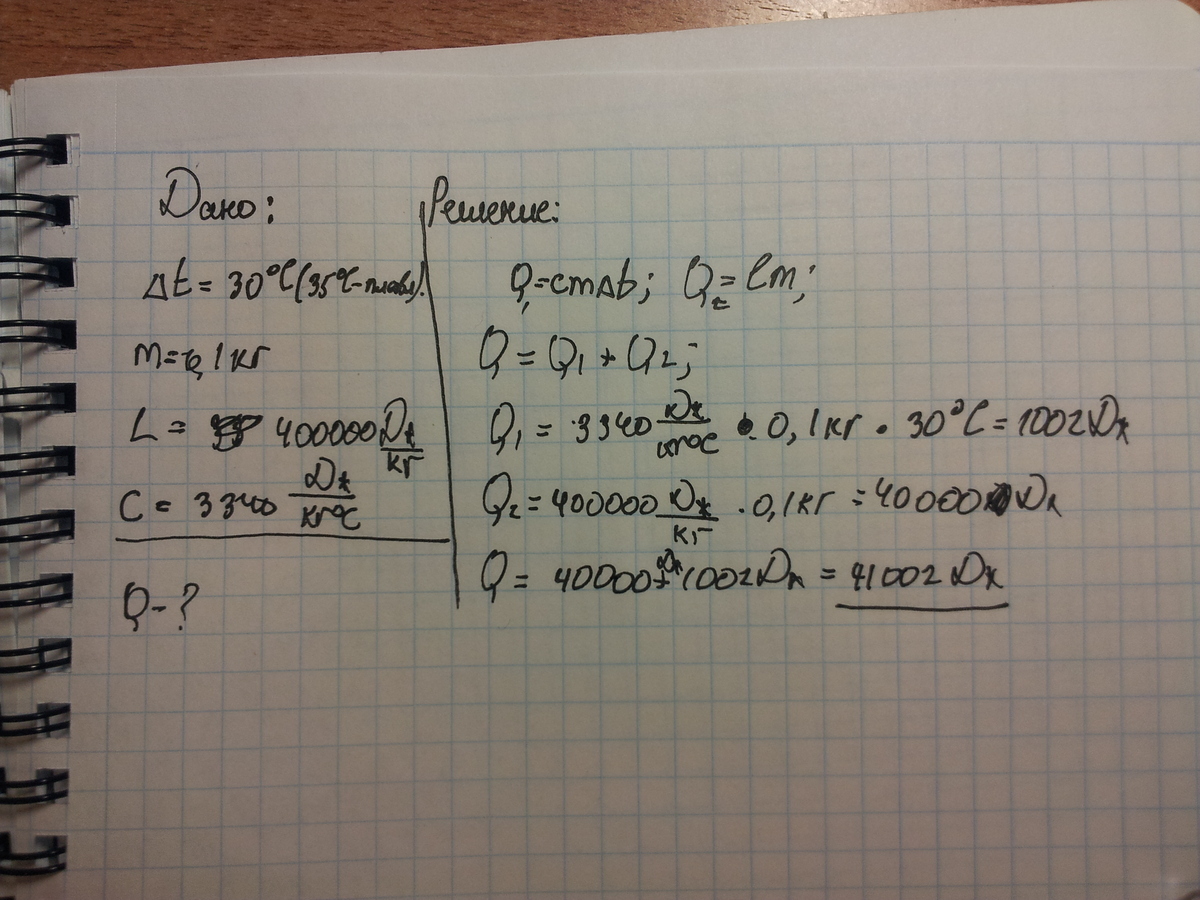 Дано:
Δt = 30°C (35°C-плавл).
m = 0,1 кг
L = 400000 Дж/кг
C = 3340 Дж/кг°C
Q - ?
Решение:
Q₁ = cmΔt; Q₂ = Lm;
Q = Q₁ + Q₂;
Q₁ = 3340 Дж/кг°C · 0,1 кг · 30°C = 1002 Дж
Q₂ = 400000 Дж/кг · 0,1 кг = 40000 Дж
Q = 40000 Дж + 1002 Дж = 41002 Дж